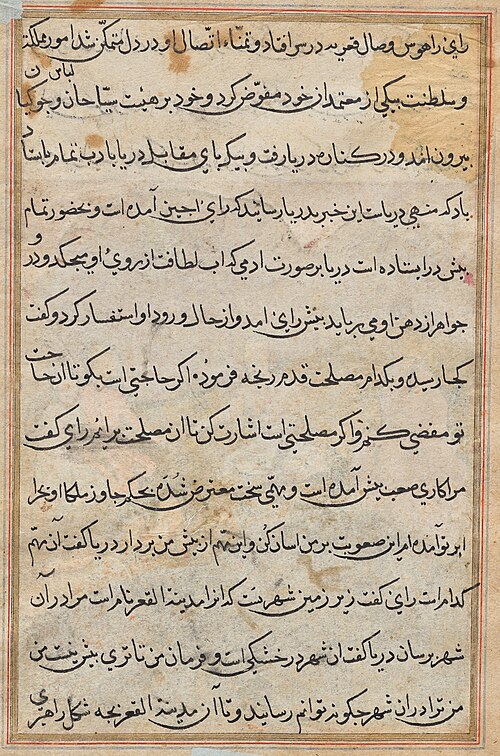 رای را هوس وصال قعریه در سر افتاد و تمناء اتصال او در دل متمکن شد امور مملکت
و سلطنت بیکی از معتمدان خود مفوض کرد و خود بر هیئت سیاحان و جوکیا لباس ن
بیرون آمد و در کناره دریا رفت و بیک پای مقابل دریا بادب تمام بایستاد
باد که منهی دریاست این خبر بدریا رسانید که رای اجین آمده است و بحضور تمام
پیش در ایستاده است دریا بر صورت ادمی که اب لطافت از روی او میچکد و در و
جواهر از دهن او می بارید پیش رای امد و از حال ورود او استفسار کرد و گفت
کجا رسیده و بکدام مصلحت قدم رنجه فرموده اگر حاجتی است بگو تا از حاجت
تو مقضی کنم و اگر مصلحتی است اشارت کن تا ان مصلحت برایم رای گفت
مرا کاری صعب پیش آمده است و مهمی سخت معترض شده بحکم جاور ملکا او بحرا
بر تو آمده ام این صعوبت بر من اسان کن و این مهم از پیش من بردار دریا گفت آن مهم
کدام است رای گفت زیر زمین شهریست که انرا مدینة القعر نام است مرا در آن
شهر برسان دریا گفت ان شهر در خشکی است و فرمان من تا تری بیش نیست من
من ترا در ان شهر چگونه توانم رسانید و تا آن مدینة القعر بجه شکل راهبری